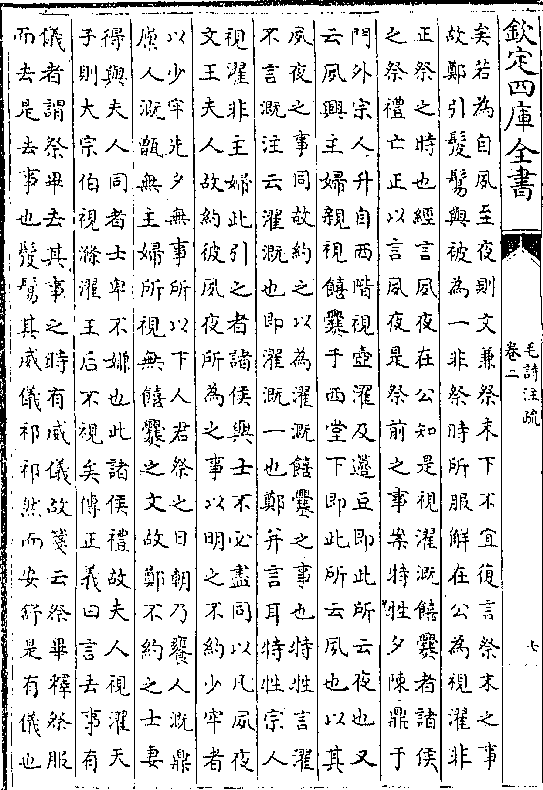 欽定四庫全書
毛詩注疏
卷二
七
矣若為自夙至夜則文兼祭末下不宜復言祭末之事
故鄭引髲鬄與被為一非祭時所服解在公為視濯非
正祭之時也經言夙夜在公知是視濯溉饎爨者諸侯
之祭禮亡正以言夙夜是祭前之事案特牲夕陳鼎于
門外宗人升自西階視壺濯及籩豆即此所云夜也又
云夙興主婦親視饎爨于西堂下即此所云夙也以其
夙夜之事同故約之以為濯溉饎爨之事也特牲言濯
不言溉注云濯溉也即濯溉一也鄭并言耳特牲宗人
視濯非主婦此引之者諸侯與士不必盡同以凡夙夜
文王夫人故約彼夙夜所為之事以明之不約少牢者
以少牢先夕無事所以下人君祭之日朝乃饔人溉鼎
廩人溉甑無主婦所視無饎爨之文故鄭不約之士妻
得與夫人同者士卑不嫌也此諸侯禮故夫人視濯天
子則大宗伯視滌濯王后不視矣傳正義曰言去事有
儀者謂祭畢去其事之時有威儀故箋云祭畢釋祭服
而去是去事也髲鬄其威儀祁祁然而安舒是有儀也